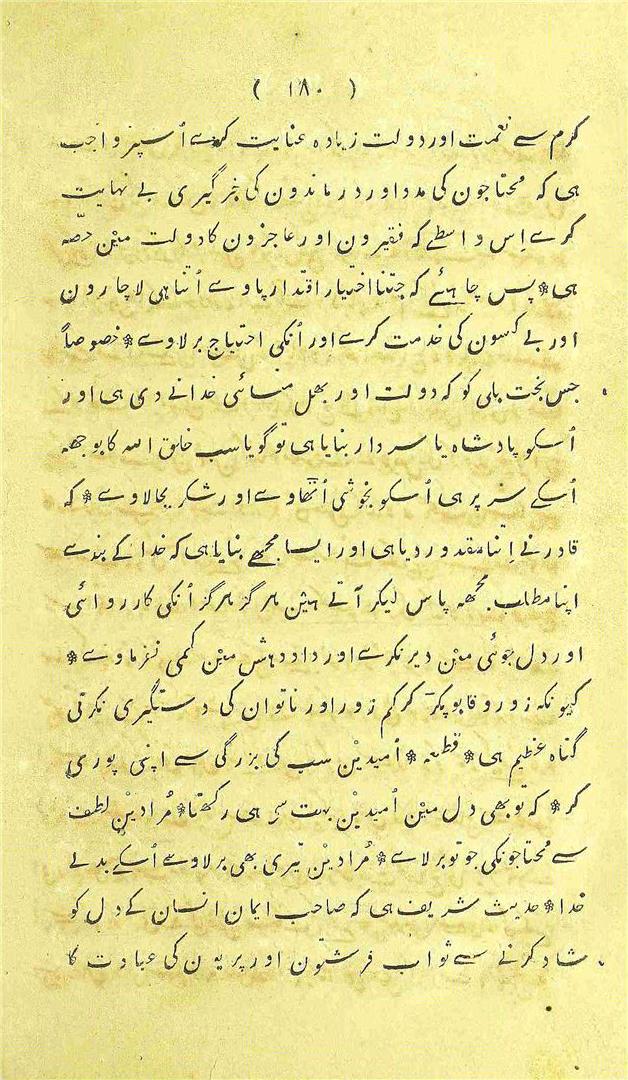 ( ۱۸۰ )
کرم سے نعمت اور دولت زیادہ عنایت کرے اُسپر واجب
ہی کہ محتاجون کی مدد اور درماندون کی خبرگیری بے نہایت
کرے اِس واسطے کہ فقیرون اور عاجزون کا دولت مین حصّہ
ہی * پس چاہئے کہ جتنا اختیار اقتدار پاوے اُتنا ہی لاچارون
اور بے کسون کی خدمت کرے اور اُنکی احتیاج بر لاوے * خصوصاً
جس بخت بلی کو کہ دولت اور بھل منسائی خدا نے دی ہی اور
اُسکو پادشاہ یا سردار بنایا ہی تو گویا سب خلق اللہ کا بوجھہ
اُسکے سر پر ہی اُسکو بخوشی اُٹھاوے اور شکر بجا لاوے * کہ
قادر نے اِتنا مقدور دیا ہی اور ایسا مجھے بنایا ہی کہ خدا کے بندے
اپنا مطلب مجھہ پاس لیکر آتے ہین ہرگز ہرگز اُنکی کارروائی
اور دل جوئی مین دیر نکرے اور داد دہش مین کمی نفرماوے *
کیونکہ زور و قابو پکر کر کم زور اور ناتوان کی دستگیری نکرنی
گناہ عظیم ہی * قطعہ * اُمیدین سب کی بزرگی سے اپنی پوری
کر * کہ تو بھی دل مین اُمیدین بہت سی ہی رکھتا * مُرادین لطف
سے محتاجونکی جو تو بر لاے * مُرادین تیری بھی بر لاوے اُسکے بدلے
خدا * حدیث شریف ہی کہ صاحب ایمان انسان کے دل کو
شاد کرنے سے ثواب فرشتون اور پریون کی عبادت کا